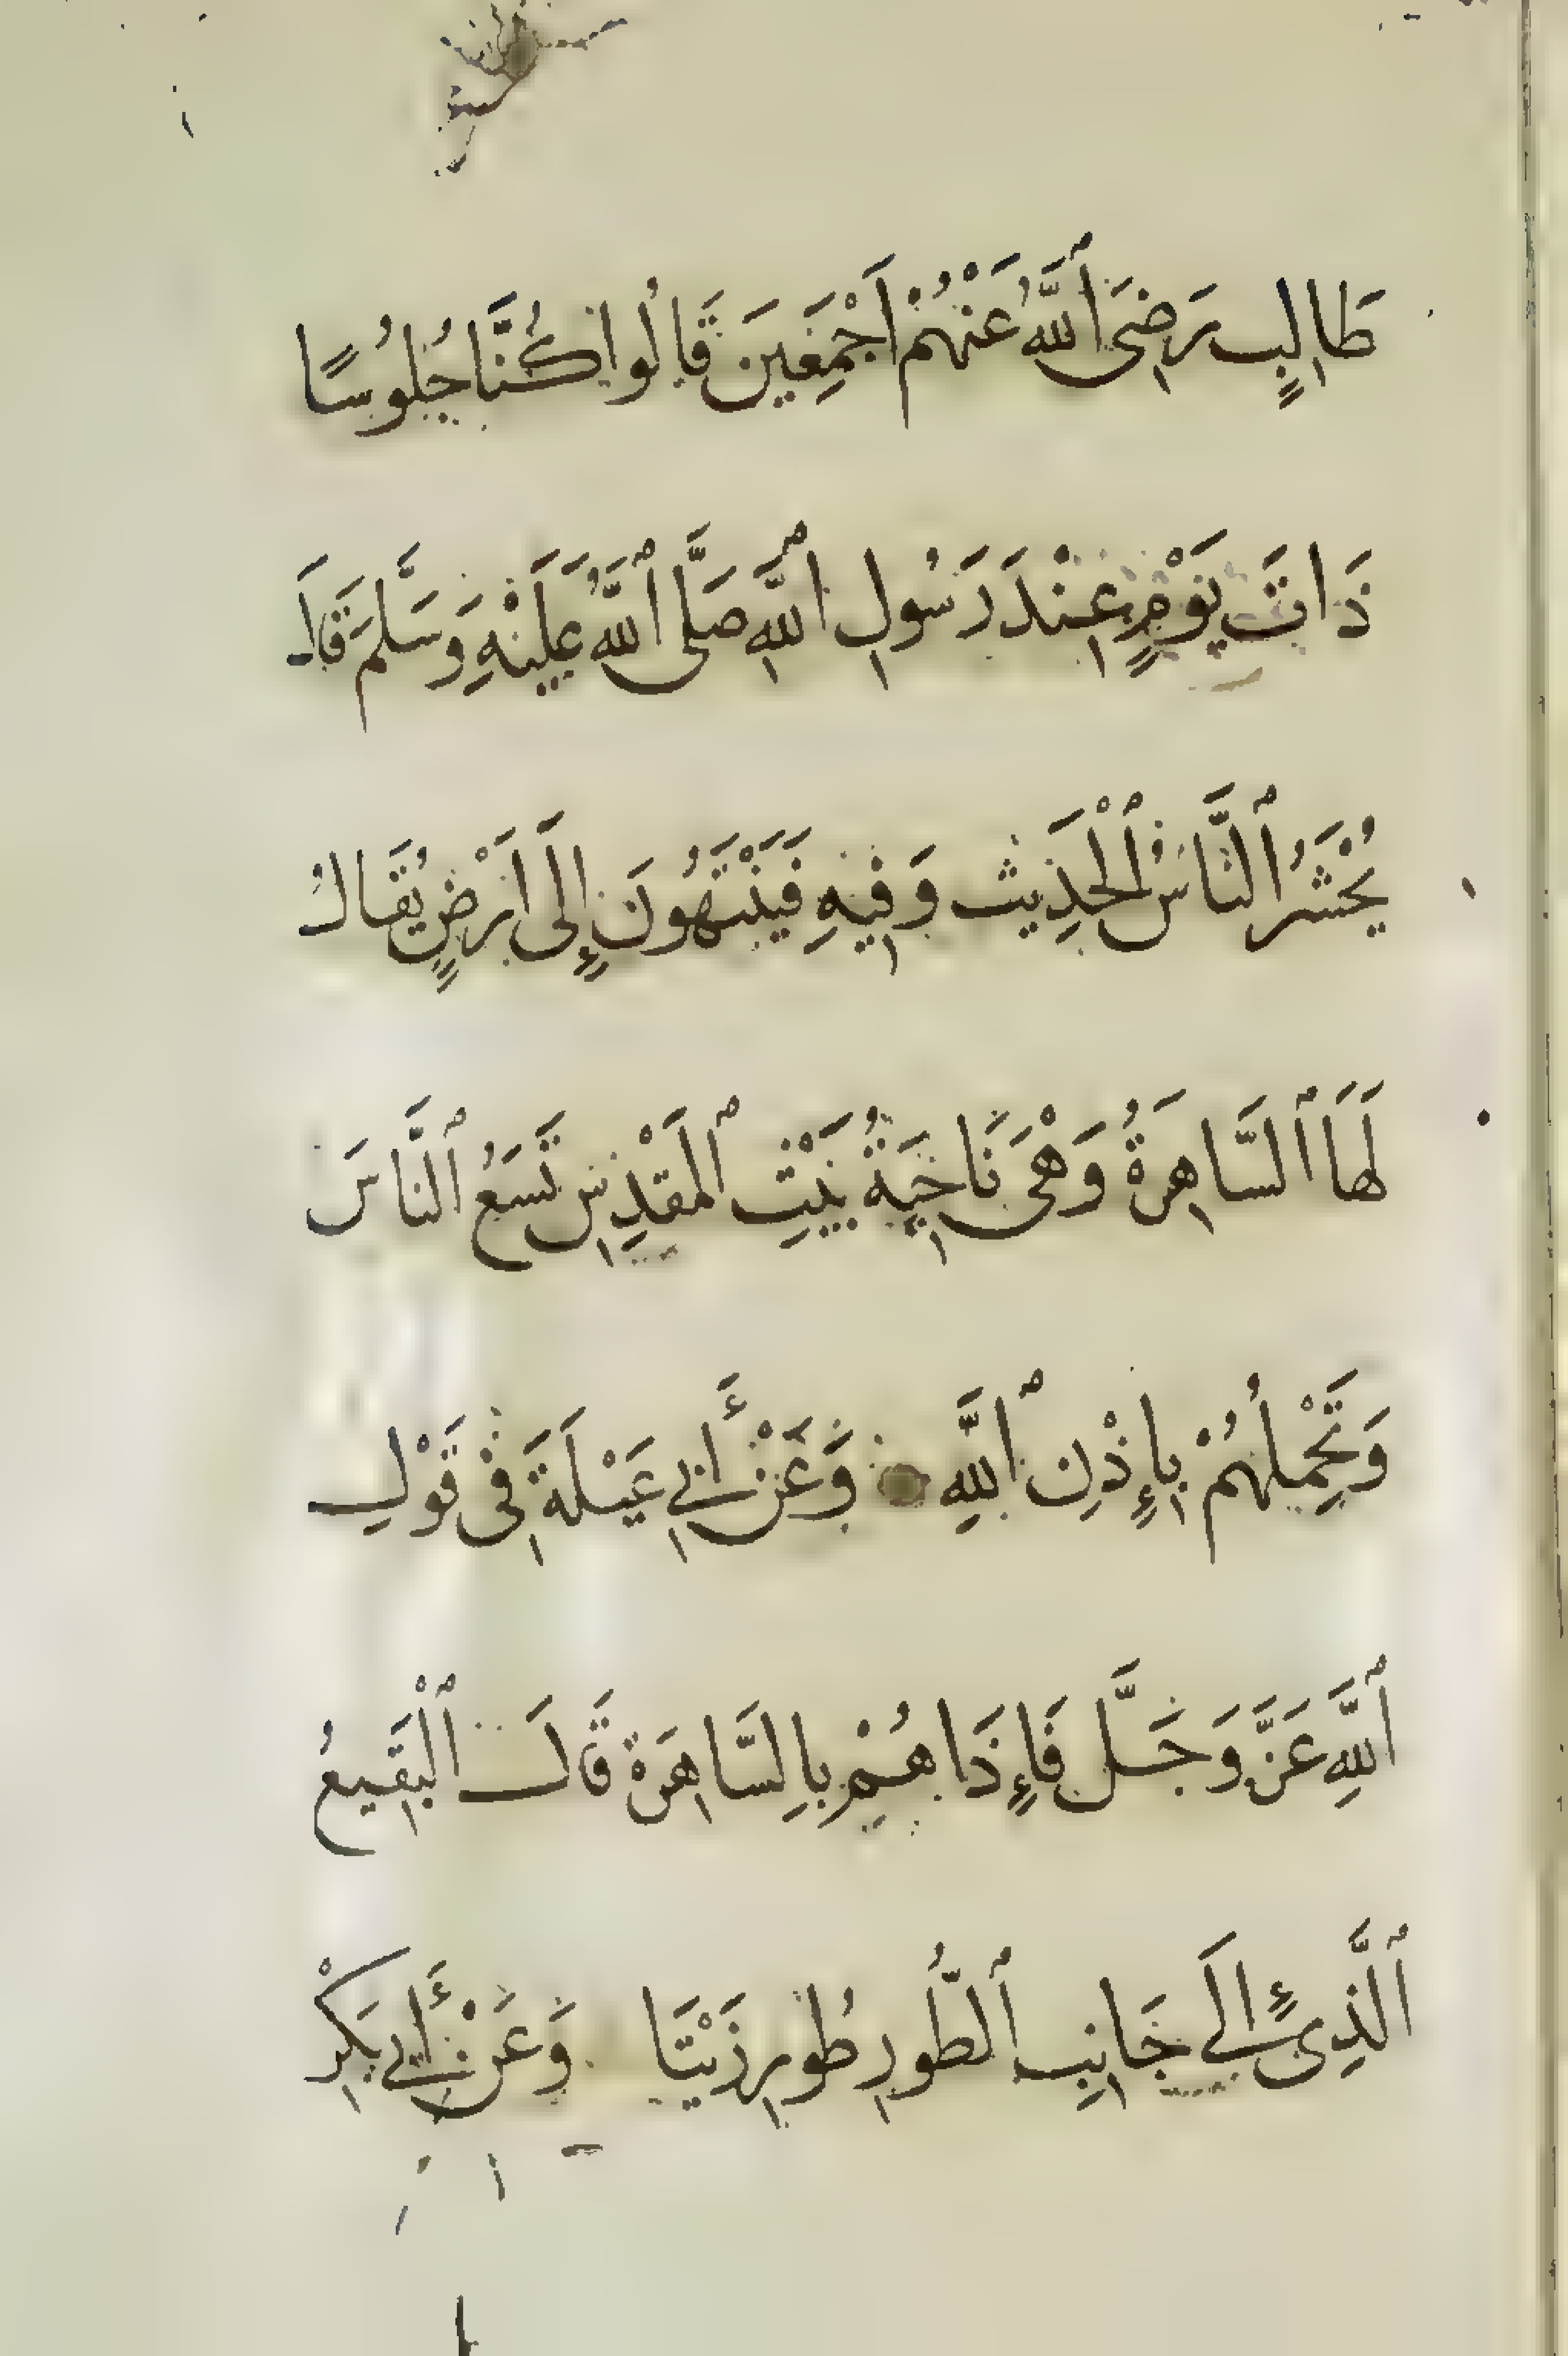 طَالِبٍ رَضِيَ ٱللَّهُ عَنْهُمْ أَجْمَعِينَ قَالُوا كُنَّا جُلُوسًا
ذَاتَ يَوْمٍ عِنْدَ رَسُولِ ٱللَّهِ صَلَّى ٱللَّهُ عَلَيْهِ وَسَلَّمَ قَالَ
يُحْشَرُ ٱلنَّاسُ ٱلْحَدِيث وَفِيهِ فَيَنْتَهُونَ إِلَى أَرْضٍ يُقَالُ
لَهَا ٱلسَّاهِرَةُ وَهْيَ نَاحِيَةُ بَيْتِ ٱلمَقْدِسِ تَسَعُ ٱلنَّاسَ
وَتَحْمِلُهُمْ بِإِذْنِ ٱللَّهِ وَعَنْ أَبِي عَبْلَةَ فِي قَوْلِ
ٱللَّهِ عَزَّ وَجَلَّ فَإِذَا هُمْ بِالسَّاهِرَةِ قَالَ ٱلْبَقِيعُ
ٱلَّذِي إِلَى جَانِبِ ٱلطُّورِ طُورِ زَيْتَا وَعَنْ أَبِي بَكْرِ